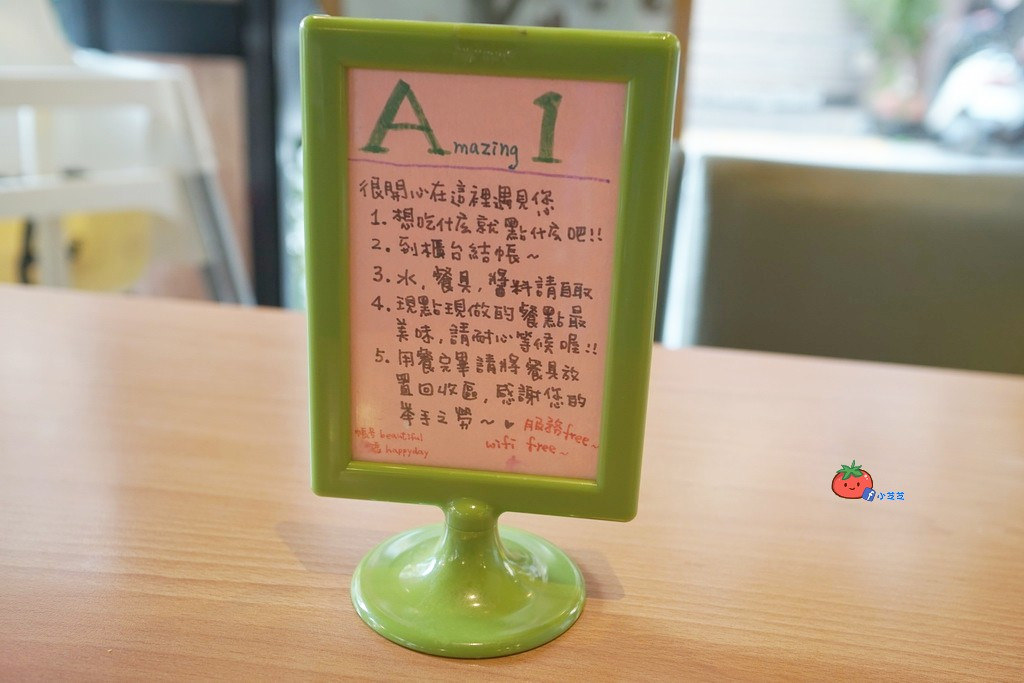 Amazing 1
很開心在這裡遇見您
1. 想吃什麼就點什麼吧!!
2. 到櫃台結帳~
3. 水, 餐具, 醬料請自取
4. 現點現做的餐點最
美味, 請耐心等候喔!!
5. 用餐完畢請將餐具放
置回收區, 感謝您的
舉手之勞~♥
服務free~
wifi free~
帳號 beautiful
happyday
小芝芝